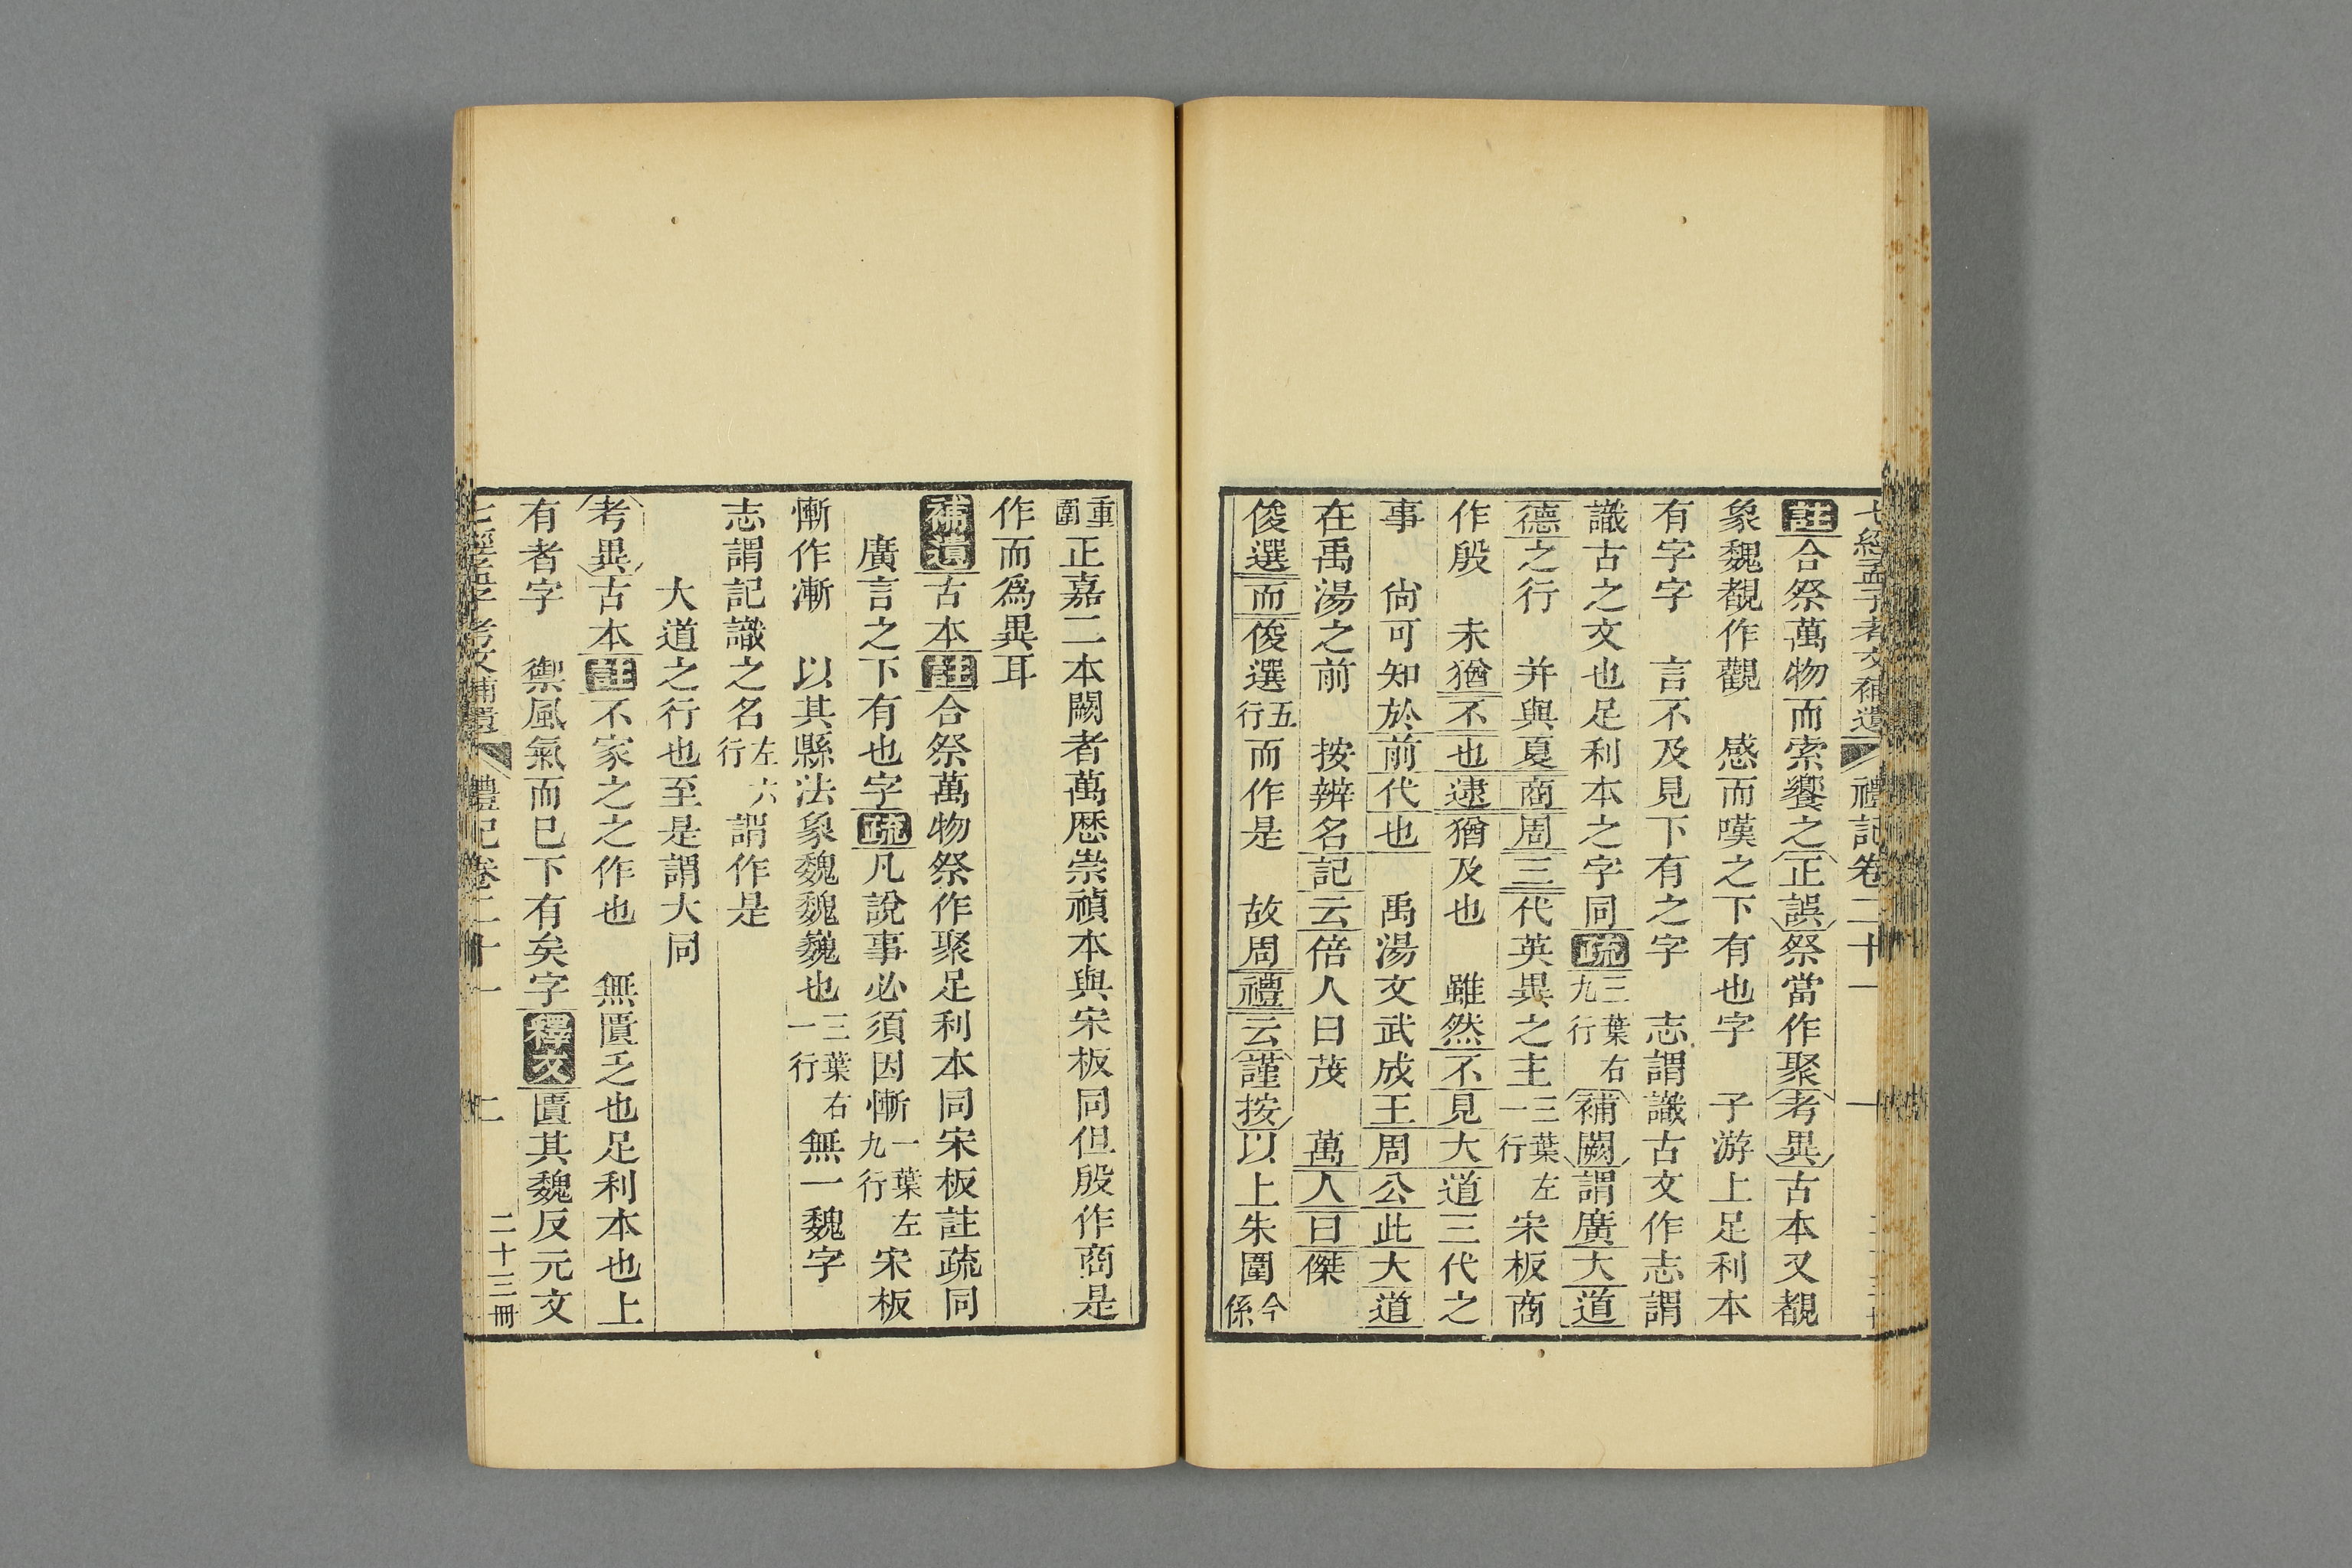 七經孟子考文補遺 禮記卷二十一 一
註合祭萬物而索饗之正誤祭當作聚考異古本又覩
象魏覩作觀 感而嘆之下有也字 子游上足利本
有字字 言不及見下有之字 志謂識古文作志謂
識古之文也足利本之字同疏三葉右九行補闕謂廣大道
德之行 并與夏商周三代英異之主三葉左一行宋板商
作殷 未猶不也逮猶及也 雖然不見大道三代之
事 尙可知於前代也 禹湯文武成王周公此大道
在禹湯之前 按辨名記云倍人曰茂 萬人曰傑
俊選而俊選五行而作是 故周禮云謹按以上朱圍今係
重圍正嘉二本闕者萬歷崇禎本與宋板同但殷作商是
作而爲異耳
補遺古本註合祭萬物祭作聚足利本同宋板註疏同
廣言之下有也字疏凡說事必須因慚一葉左九行宋板
慚作漸 以其縣法象魏魏巍也三葉右一行無一魏字
志謂記識之名左六行謂作是
大道之行也至是謂大同
考異古本註不家之之作也 無匱乏也足利本也上
有者字 禦風氣而已下有矣字釋文匱其魏反元文
七經孟子考文補遺 禮記卷二十一 二 二十三冊